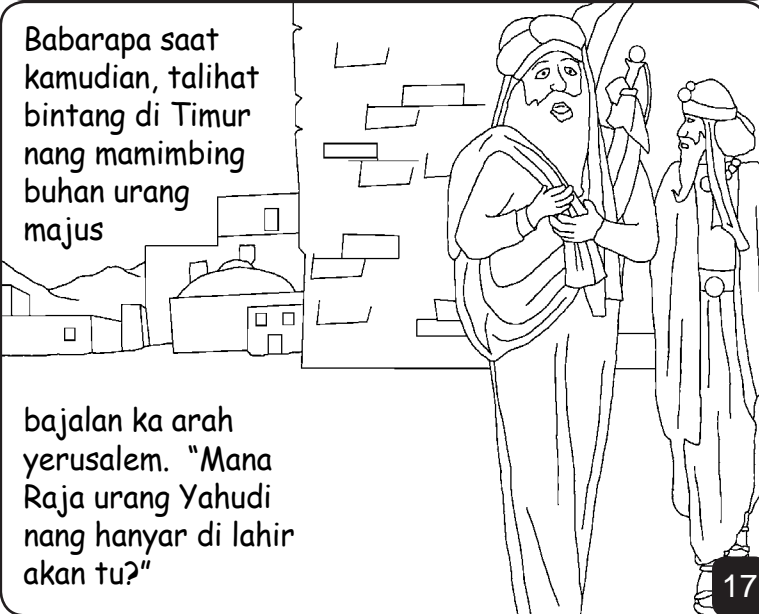 Babarapa saat
kamudian, talihat
bintang di Timur
nang mamimbing
buhan urang
majus
bajalan ka arah
yerusalem. “Mana
Raja urang Yahudi
nang hanyar di lahir
akan tu?”
17